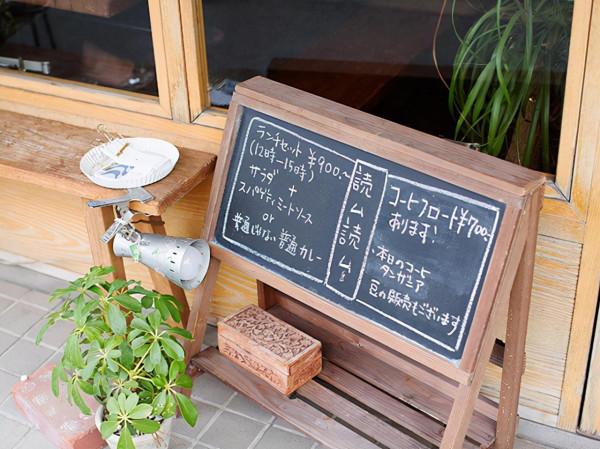 ランチセット ¥900.～
(12時～15時)
サラダ +
スパゲティミートソース
or
普通じゃない普通カレー
読ム読ム
コーヒーフロート¥700.
あります!
・本日のコーヒー
タンザニア
豆の販売もございます